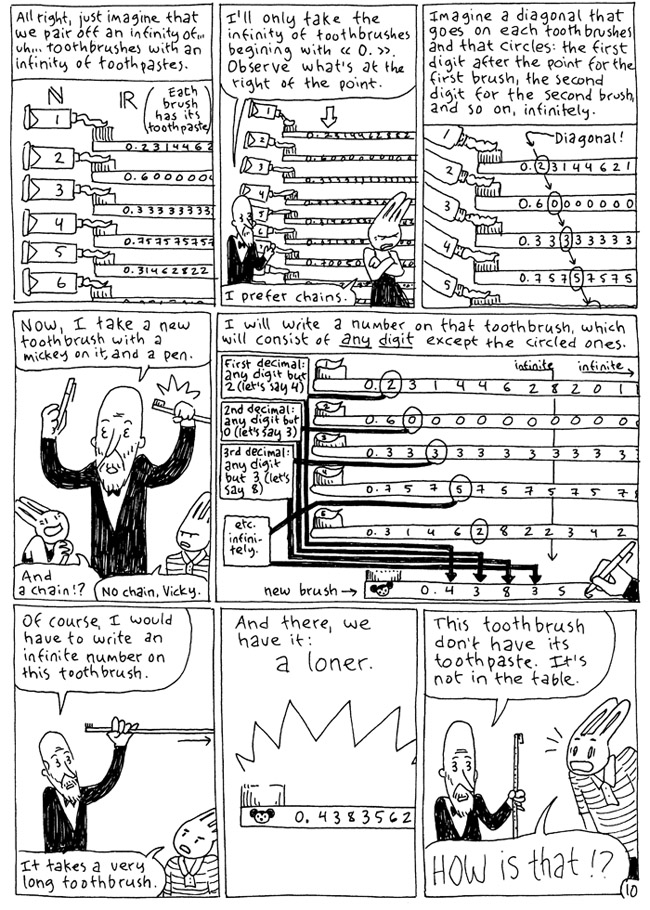 All right, just imagine that
we pair off an infinity of...
uh... toothbrushes with an
infinity of toothpastes.
N
IR
(Each
brush
has its
toothpaste)
1
0.2314462
2
0.6000000
3
0.33333333
4
0.7575757577
5
0.31462822
6
I'll only take the
infinity of toothbrushes
begining with « 0. ».
Observe what's at the
right of the point.
1
0.2314462882
2
3
4
5
6
0.70050
I prefer chains.
Imagine a diagonal that
goes on each toothbrushes
and that circles: the first
digit after the point for the
first brush, the second
digit for the second brush,
and so on, infinitely.
Diagonal!
1
0.23144621
2
0.60000000
3
0.33333333
4
0.75757575
5
Now, I take a new
toothbrush with a
mickey on it, and a pen.
And
a chain!?
No chain, Vicky.
I will write a number on that toothbrush, which
will consist of any digit except the circled ones.
infinite
infinite
First decimal:
any digit but
2 (let's say 4)
0.23144628201
2nd decimal:
any digit but
0 (let's say 3)
0.60000000000
3rd decimal:
any digit
but 3 (let's
say 8)
3
0.33333333333
4
0.75757575757
etc.
infini-
tely.
5
0.31462822342
new brush →
0.438356
Of course, I would
have to write an
infinite number on
this toothbrush.
It takes a very
long toothbrush.
And there, we
have it:
a loner.
0.4383562
This toothbrush
don't have its
toothpaste. It's
not in the table.
HOW is that!?
10